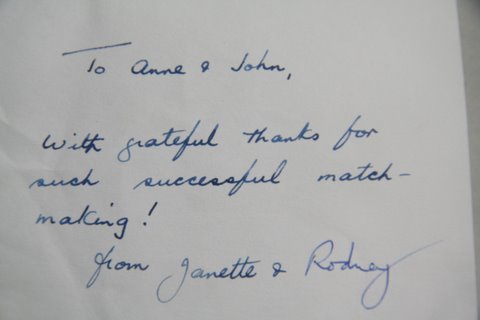 To Anne & John,
With grateful thanks for
such successful match-
making!
from Janette & Rodney